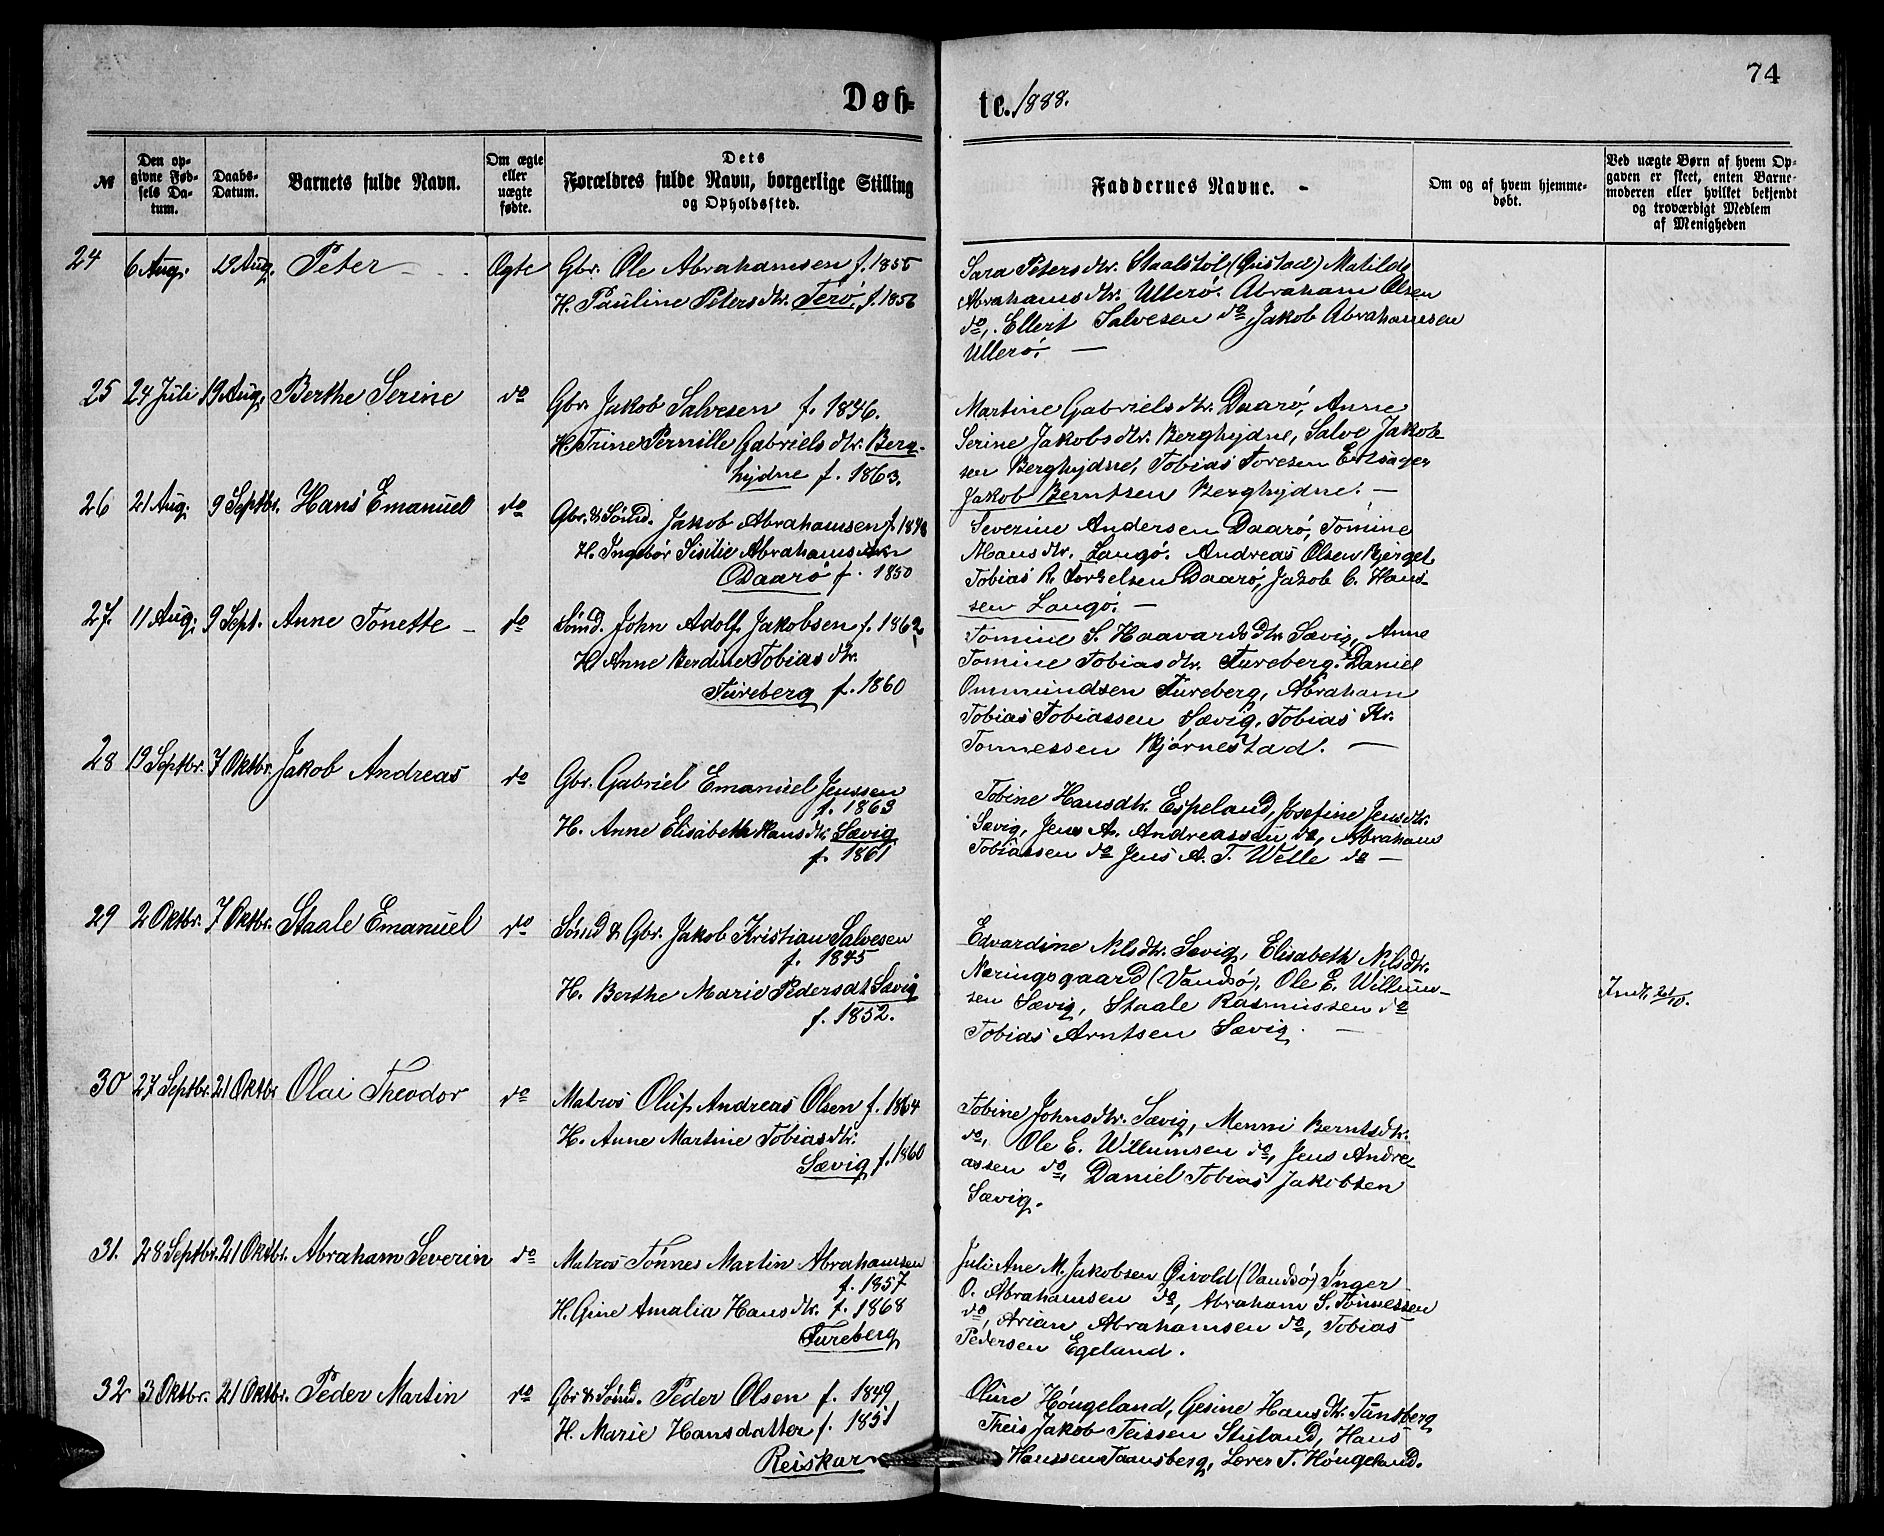 74
Døb- te. 1888.
№
Den op-
givne Fød-
sels Da-
tum.
Daabs-
Datum.
Barnets fulde Navn.
Om ægte
eller
uægte
fødte.
Dets
Forældres fulde Navn, borgerlige Stilling
og Opholdssted.
Faddernes Navne.
Om og af hvem hjemme-
døbt.
Ved uægte Børn af hvem Op-
gaven er skeet, enten Barne-
moderen eller hvilket bekjendt
og troværdigt Medlem
af Menigheden
24 6 Aug. 19 Aug. Peter Ægte
Gbr. Ole Abrahamsen f. 1855
H. Pauline Petersdtr. Terø, f. 1856
Sara Petersdtr. Staalstøl (Gustad) Matilde
Abrahamsdtr. Ullerø. Abraham Olsen
do, Ellert Salvesen do, Jakob Abrahamsen
Ullerø. —
25 24 Juli 19 Aug. Berthe Serine do
Gbr. Jakob Salvesen f. 1856.
H. Trine Pernille Gabrielsdtr. Berg-
hydne f. 1863.
Martine Gabrielsdtr. Daarø, Anne
Serine Jakobsdtr. Berghydne, Salve Jakob-
sen Berghydne, Tobias Toresen
Jakob Berntsen Berghydne. —
26 21 Aug. 9 Septbr. Hans Emanuel do
Gbr. & Sømd. Jakob Abrahamsen f. 1848
H. Ingebor Sisilie Abrahamsdtr
Daarø f. 1850
Severine Andersen Daarø, Tomine
Hansdtr. Langø. Andreas Olsen Bjerget,
Tobias R. Torkelsen Daarø, Jakob C. Han-
sen Langø. —
27. 11 Aug. 9 Sept. Anne Tonette — do
Sømd. John Adolf Jakobsen f. 1862
H. Anne Berdine Tobiasdtr.
Tureberg f. 1860
Tomine S. Haavardsdtr. Sævig, Anne
Tomine Tobiasdtr. Tureberg. Daniel
Ommundsen Tureberg, Abraham
Tobias Tobiassen Sævig. Tobias Kr.
Tonnessen Bjørnestad. —
28 19 Septbr. 7 Oktbr. Jakob Andreas do
Gbr. Gabriel Emanuel Jenssen
f. 1863
H. Anne Elisabeth Hansdtr. Sævig
f. 1861
Tobine Hansdtr. Espeland, Josefine Jensdtr.
Sævig, Jens A. Andreassen do, Abraham
Tobiassen do Jens A. T. Welle do —
29 2 Oktbr. 7 Oktbr. Staale Emanuel do
Sømd & Gbr. Jakob Kristian Salvesen
f. 1845
H. Berthe Marie Pedersdt Sævig
f. 1852.
Edvardine Nilsdtr. Sævig, Elisabeth Nilsdtr.
Næringsgaard (Vandsø), Ole E. Willum-
sen Sævig, Staale Rasmussen do
Tobias Arntsen Sævig. —
Indt. 21/10.
30 27 Septbr. 21 Oktbr Olai Theodor do
Matros Oluf Andreas Olsen f. 1864
H. Anne Martine Tobiasdtr.
Sævig f. 1860
Tobine Johnsdtr. Sævig, Menni Berntsdtr.
do, Ole E. Willumsen do, Jens Andre-
assen do, Daniel Tobias Jakobsen
Sævig.
31. 28 Septbr. 21 Oktbr. Abraham Severin do
Matros Tønnes Martin Abrahamsen
f. 1857
H. Gine Amalia Hansdtr. f. 1868
Tureberg
Juli Ane M. Jakobsen Øivold (Vandsø) Inger
O. Abrahamsen do, Abraham S. Tønnessen
do, Arian Abrahamsen do, Tobias
Pedersen Egeland.
32 3 Oktbr. 21 Oktbr. Peder Martin do
Gbr & Sømd. Peder Olsen f. 1849
H. Marie Hansdatter f. 1851
Reiskar
Oline Høugeland, Gesine Hansdtr. Tansberg
Theis Jakob Teissen Stuland, Hans
Hanssen Taansberg, Lærer T. Høugeland.